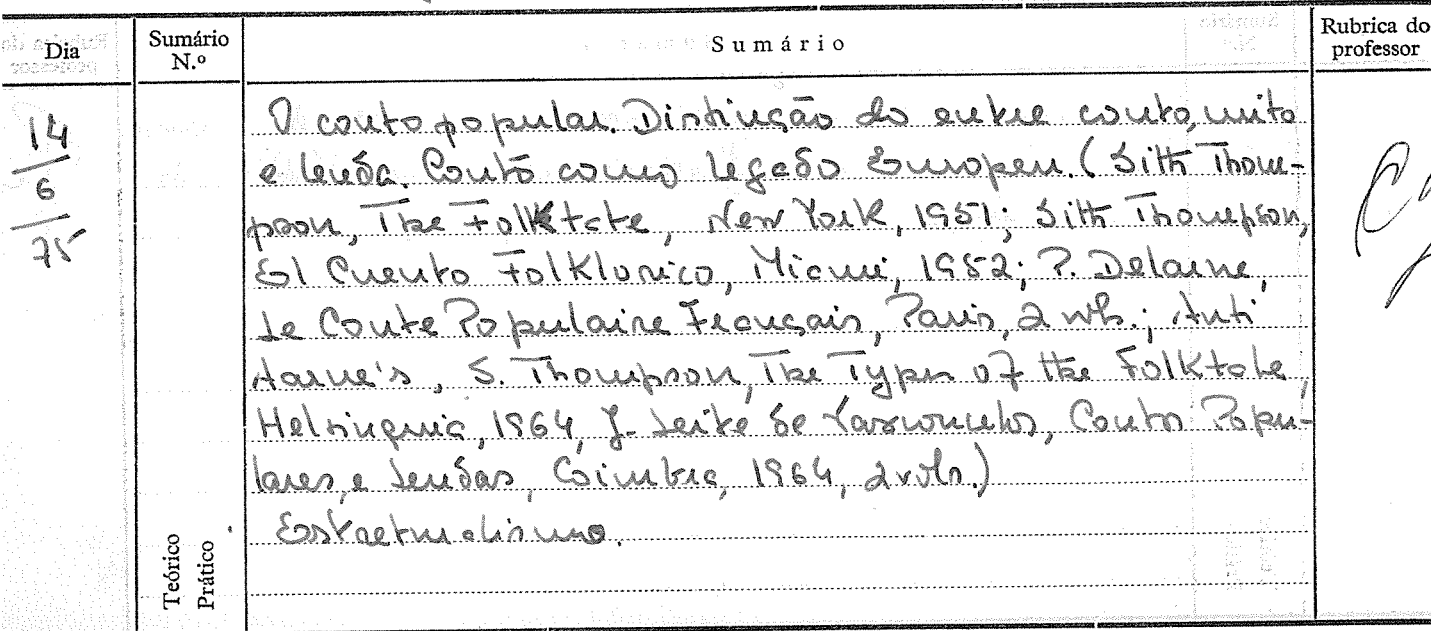 Dia
Sumário N.º
Sumário
Rubrica do professor
14
6
75
O conto popular. Distinção do entre conto, mito
e lenda. Conto como legado Europeu. (Sith Thom-
pson, The Folktate, New York, 1951; Sith Thompson,
El Cuento Folklorico, Miami, 1952; P. Delarne,
Le Conte Populaire Français, Paris, 2 vols.; Anti
Aarne's, S. Thompson, The Types of the Folktale,
Helsinquia, 1964, J. Leite de Vasconcelos, Contos Popu-
lares, e Lendas, Coimbra, 1964, 2 vols.)
Estruturalismo.
Teórico
Prático